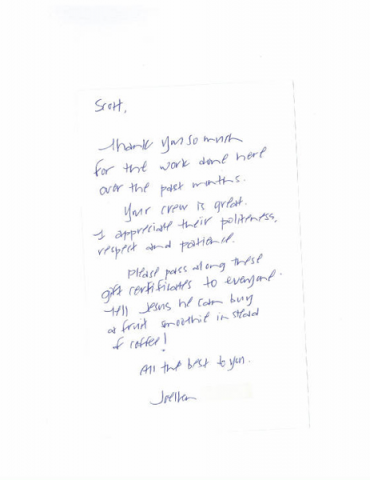 Scott,
Thank you so much
for the work done here
over the past months.
Your crew is great.
I appreciate their politeness,
respect and patience.
Please pass along these
gift certificates to everyone.
Tell Jesus he can buy
a fruit smoothie instead
of coffee!
All the best to you.